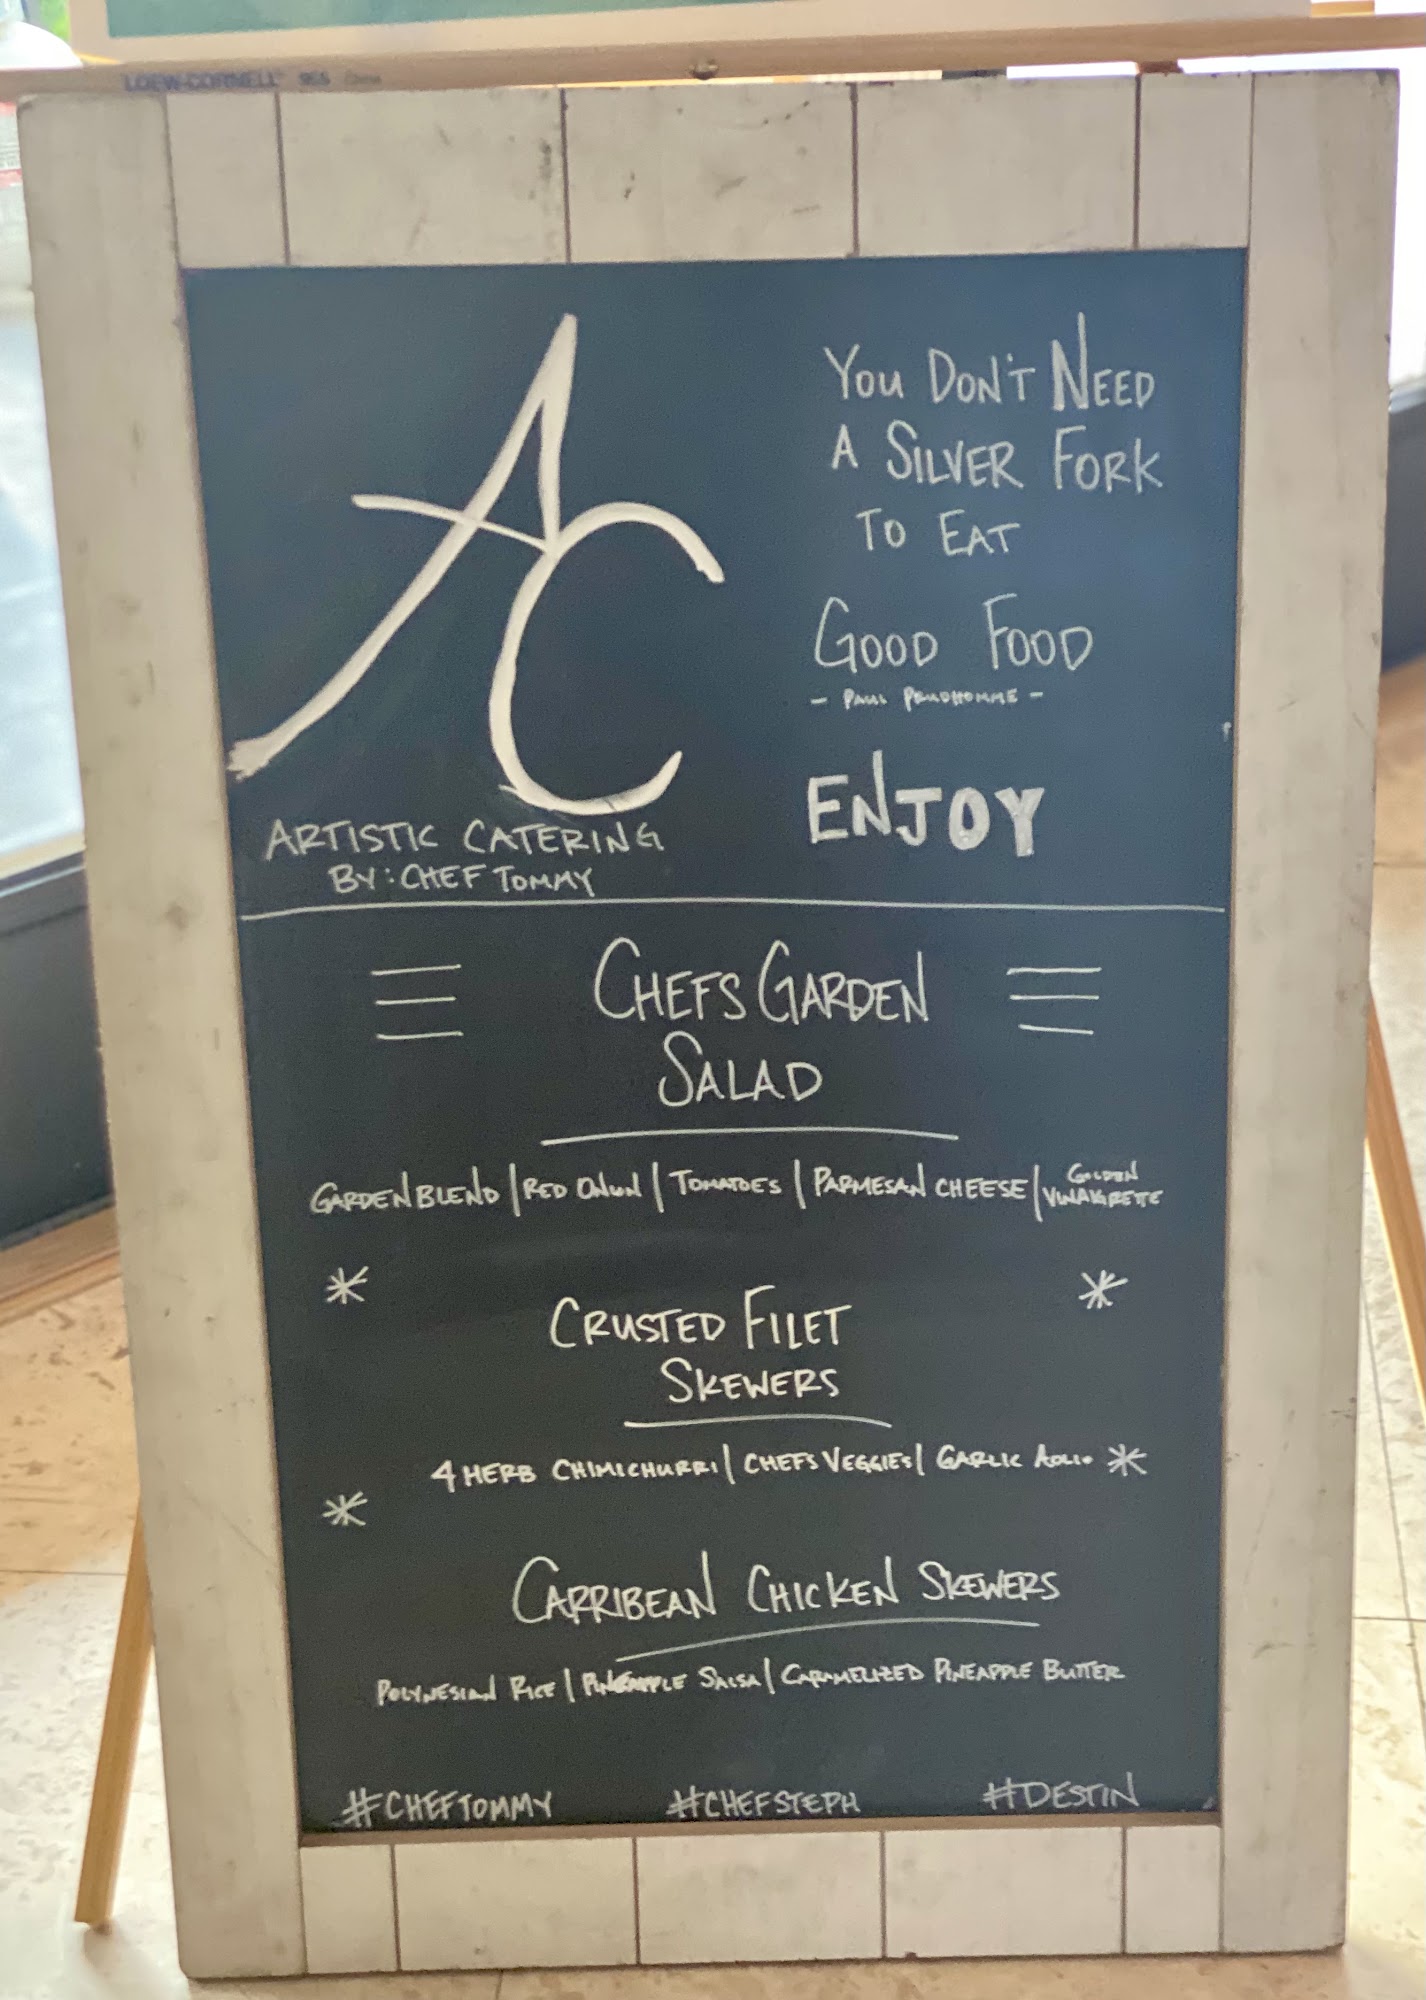 LOEW-CORNELL 956
AC
ARTISTIC CATERING
BY: CHEF TOMMY
YOU DON'T NEED
A SILVER FORK
TO EAT
GOOD FOOD
- PAUL PRUDHOMME -
ENJOY
CHEFS GARDEN
SALAD
GARDEN BLEND | RED ONION | TOMATOES | PARMESAN CHEESE | GOLDEN VINAIGRETE
CRUSTED FILET
SKEWERS
4 HERB CHIMICHURRI | CHEFS VEGGIES | GARLIC AOLIO
CARRIBEAN CHICKEN SKEWERS
POLYNESIAN RICE | PINEAPPLE SALSA | CARAMELIZED PINEAPPLE BUTTER
#CHEFTOMMY #CHEFSTEPH #DESTIN